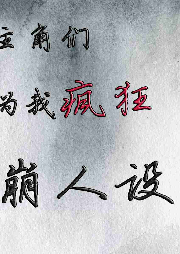 主角们
为我疯狂
崩人设